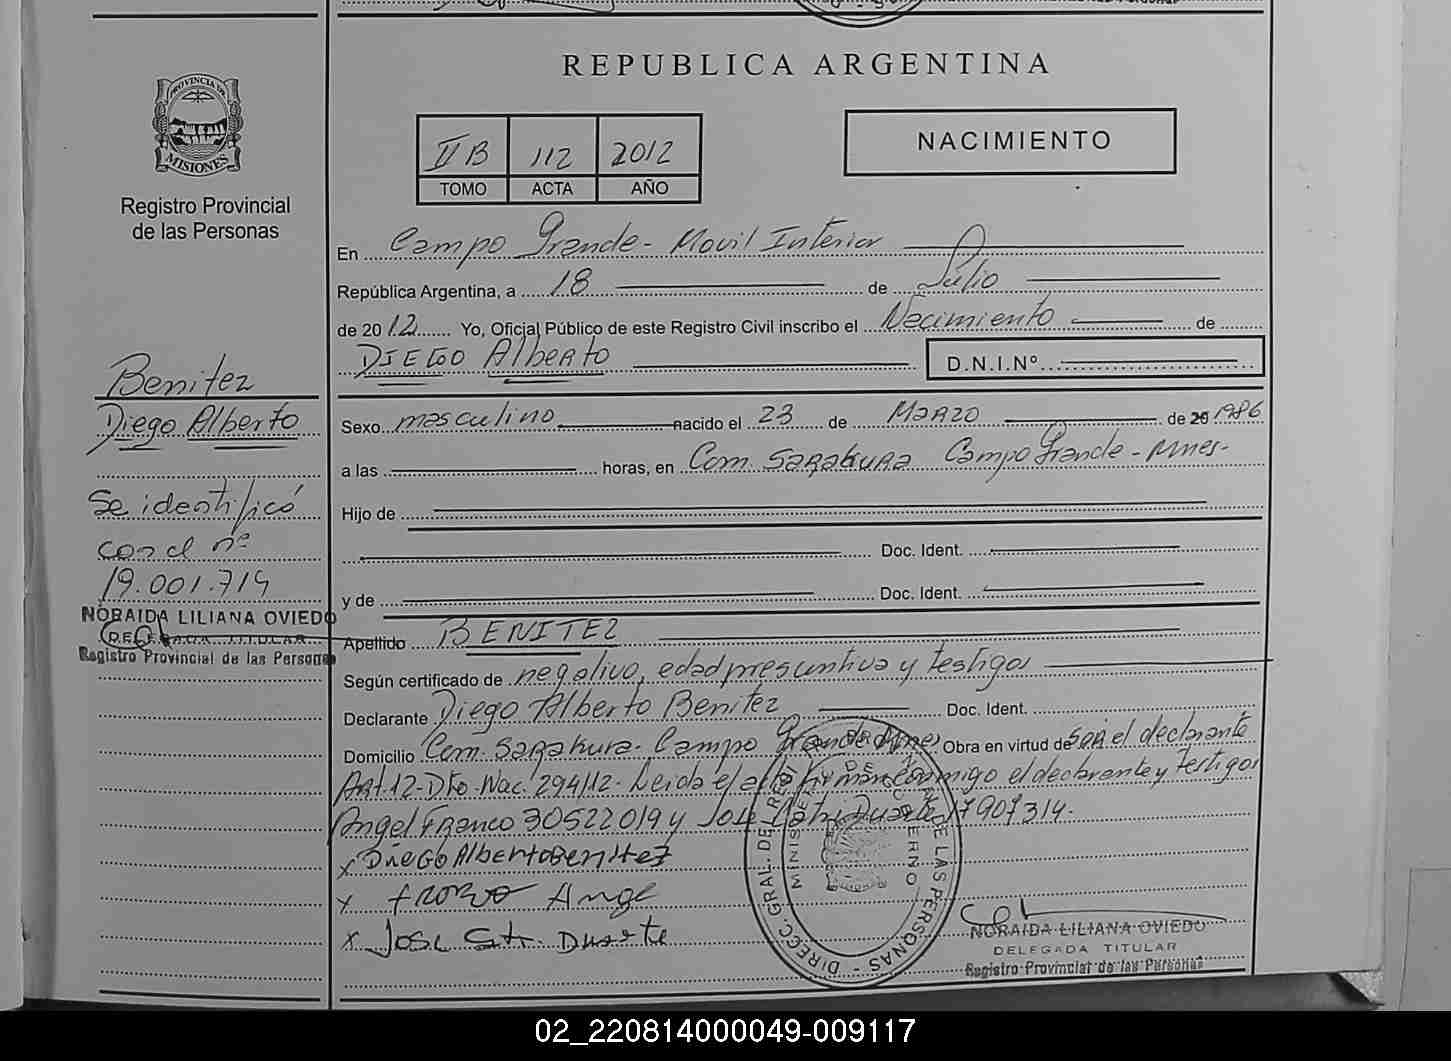 REPUBLICA ARGENTINA
PROVINCIA DE
MISIONES
Registro Provincial
de las Personas
II B 112 2012
TOMO ACTA AÑO
NACIMIENTO
En Campo Grande - Movil Interior
República Argentina, a 18 de Julio
de 2012 Yo, Oficial Público de este Registro Civil inscribo el Nacimiento de
DIEGO AlberTo D.N.I.Nº
Benitez
Diego Alberto
Se identificó
con el nº
19.001.714
NORAIDA LILIANA OVIEDO
DELEGADA TITULAR
Registro Provincial de las Personas
Sexo masculino nacido el 23 de MARZO de 20 1986
a las horas, en Com. SARAKURA Campo Grande - Mnes-
Hijo de
Doc. Ident.
y de Doc. Ident.
Apellido BENITEZ
Según certificado de negativo, edad presuntiva y testigos
Declarante Diego Alberto Benitez Doc. Ident.
Domicilio Com. Sarakura. Campo Grande Mnes Obra en virtud de Ser el declarante
Art. 12 - Dto. Nac. 294/12 - Leida el acta firman conmigo el declarante y testigos
Angel Franco 30522019 y Jose Duarte 17907314.
x DiEGO AlbertoBenitez
x Ange
x Jose Duarte
DIRECC. GRAL. DE REGISTRO PROVINCIAL DE LAS PERSONAS
MINISTERIO DE GOBIERNO
NORAIDA LILIANA OVIEDO
DELEGADA TITULAR
Registro Provincial de las Personas
02_220814000049-009117